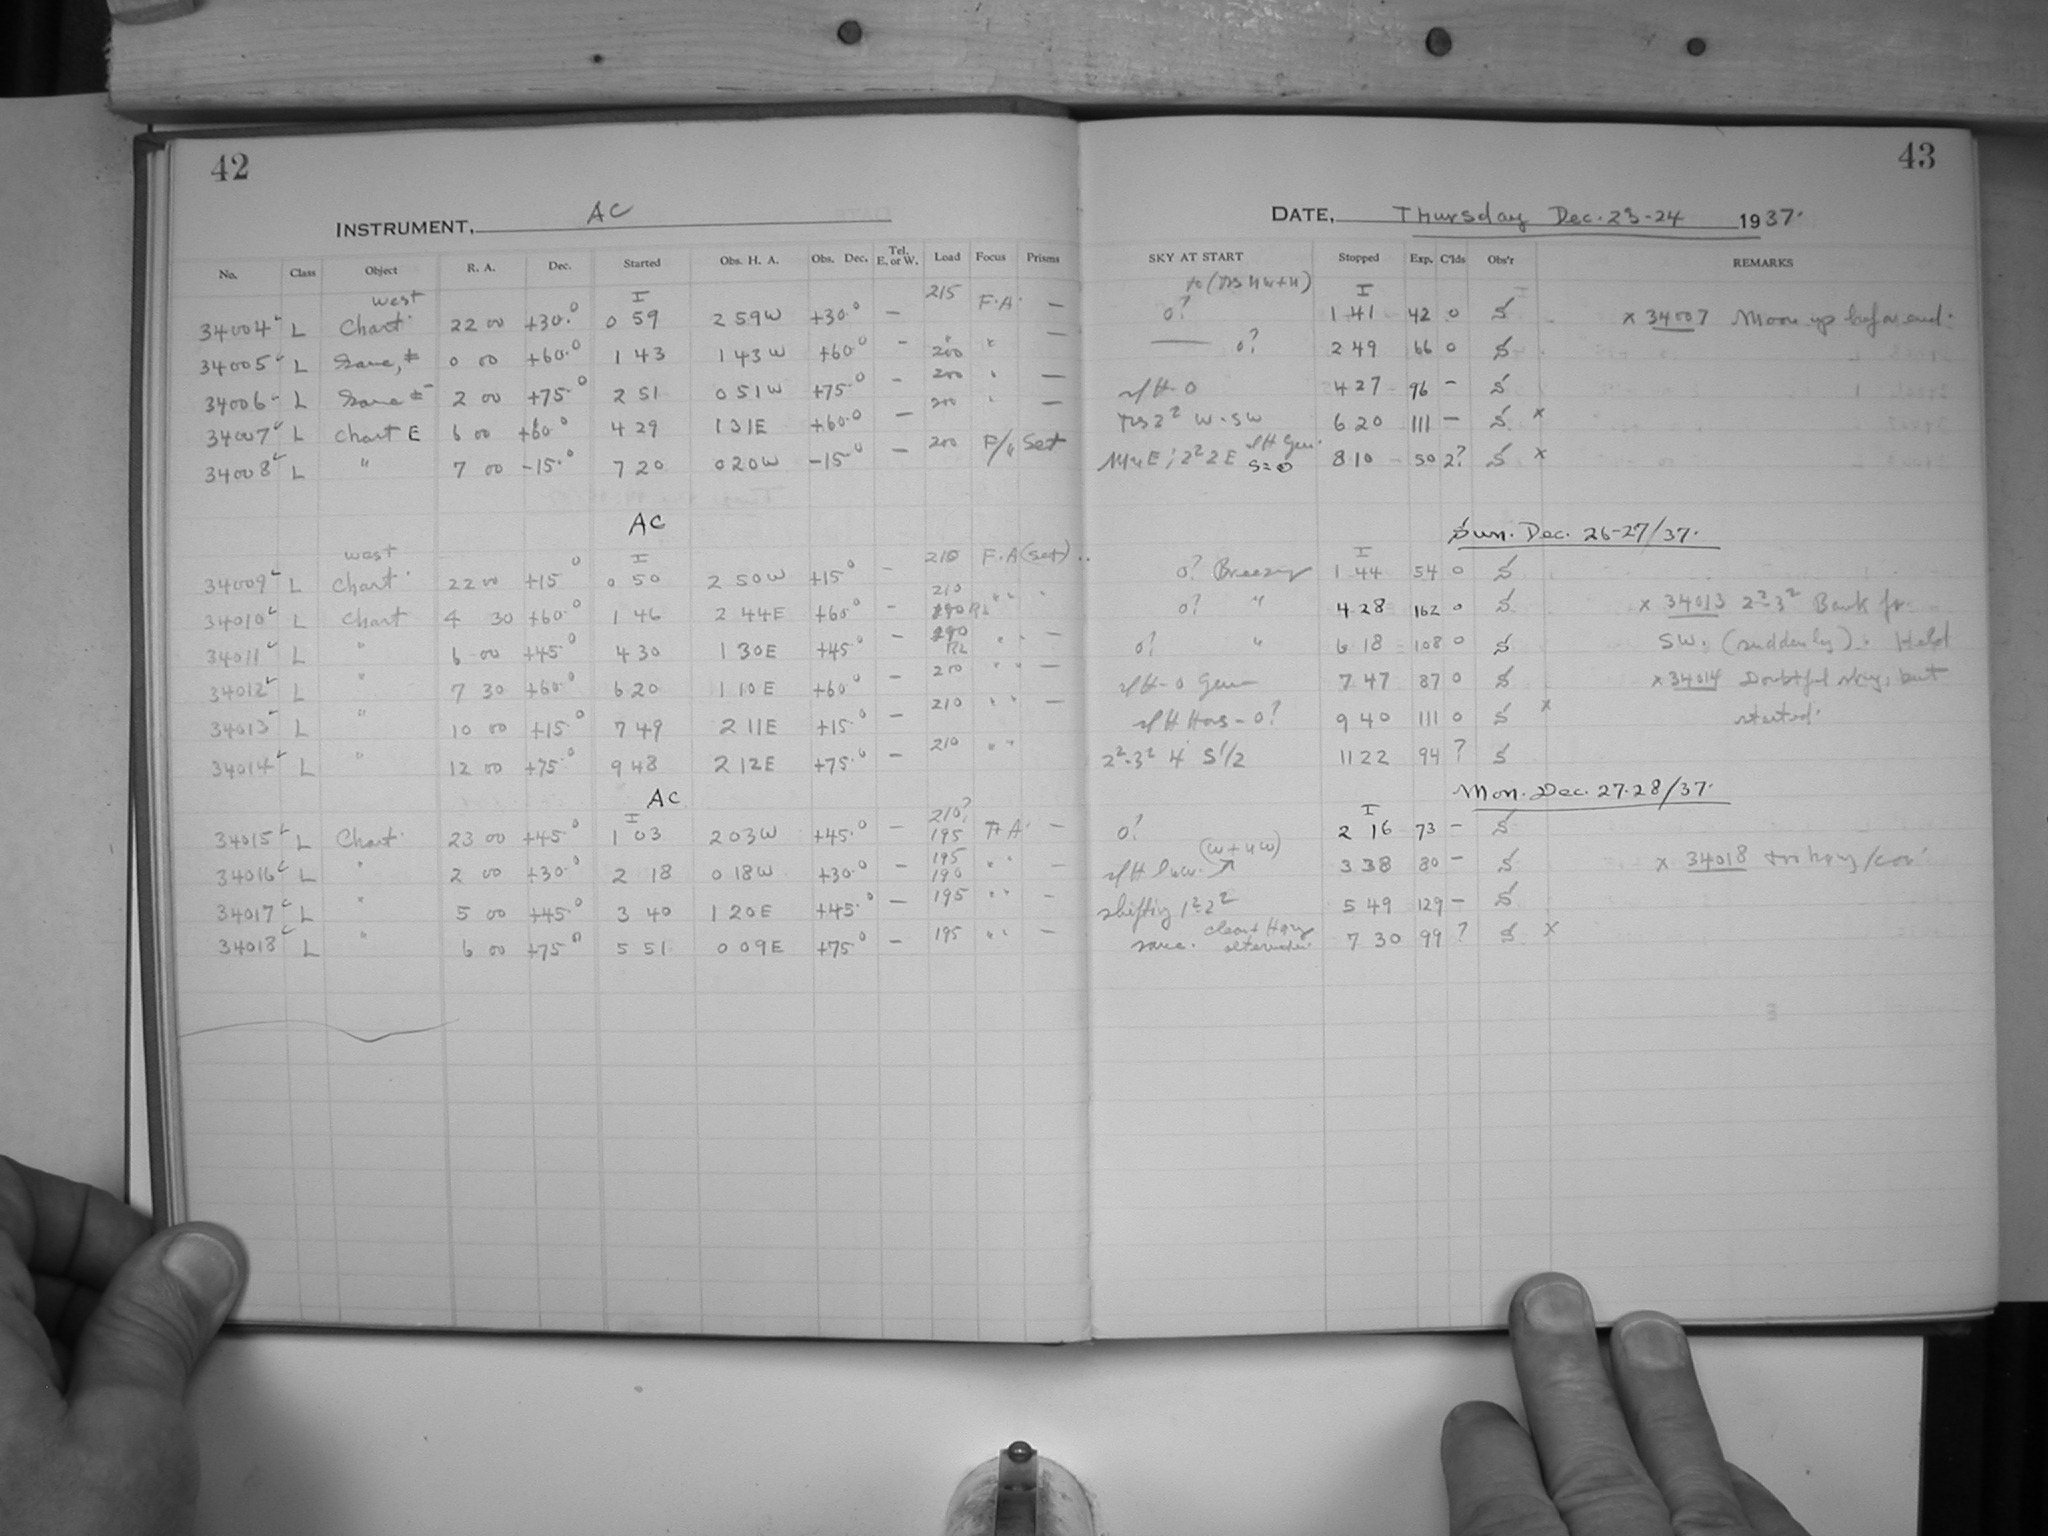 42
43
INSTRUMENT, AC
DATE, Thursday Dec. 23-24 1937.
No. Class Object R. A. Dec. Started Obs. H. A. Obs. Dec. Tel. E. or W. Load Focus Prisms SKY AT START Stopped Exp. C'lds Obs'r REMARKS
west I 215 F.A. — I
34004 L Chart 22 00 +30.° 0 59 2 59W +30.° — 0? 1 41 42 0 S x 34007 Moon up before end.
34005 L Same, 0 00 +60.° 1 43 1 43W +60° — 200 " — 0? 2 49 66 0 S
34006 L Same 2 00 +75.° 2 51 0 51W +75.° — 200 " — 4 27 96 — S
34007 L Chart E 6 00 +60° 4 29 1 31E +60.° — 200 " — 2² W-SW 6 20 111 — S x
34008 L " 7 00 -15.° 7 20 0 20W -15.° — 200 Set 8 10 50 2? S x
AC Sun. Dec. 26-27/37.
west I 210 F.A (set) I
34009 L Chart 22 00 +15° 0 50 2 50W +15° — 0? Breezy 1 44 54 0 S
34010 L Chart 4 30 +60.° 1 46 2 44E +60° — 210 " " 0? " 4 28 162 0 S x 34013 2²-3² Bank fr.
34011 L " 6 00 +45.° 4 30 1 30E +45° — " " — 0? " 6 18 108 0 S SW. (suddenly). Held
34012 L " 7 30 +60.° 6 20 1 10E +60° — 210 " " — 7 47 87 0 S x 34014 Doubtful sky, but
34013 L " 10 00 +15.° 7 49 2 11E +15.° — 210 " " — 9 40 111 0 S x started.
34014 L " 12 00 +75.° 9 48 2 12E +75.° — 210 " " 2²-3² 4 S 1/2 11 22 94 ? S
AC Mon. Dec. 27-28/37.
I 210? I
34015 L Chart 23 00 +45.° 1 03 2 03W +45.° — 195 — 0? 2 16 73 — S
34016 L " 2 00 +30.° 2 18 0 18W +30.° — 195 190 " " — low. (W + NW) 3 38 80 — S x 34018
34017 L " 5 00 +45.° 3 40 1 20E +45.° — 195 " " — shifting 1²-2² 5 49 129 — S
34018 L " 6 00 +75° 5 51 0 09E +75° — 195 " " — same. 7 30 99 ? S x